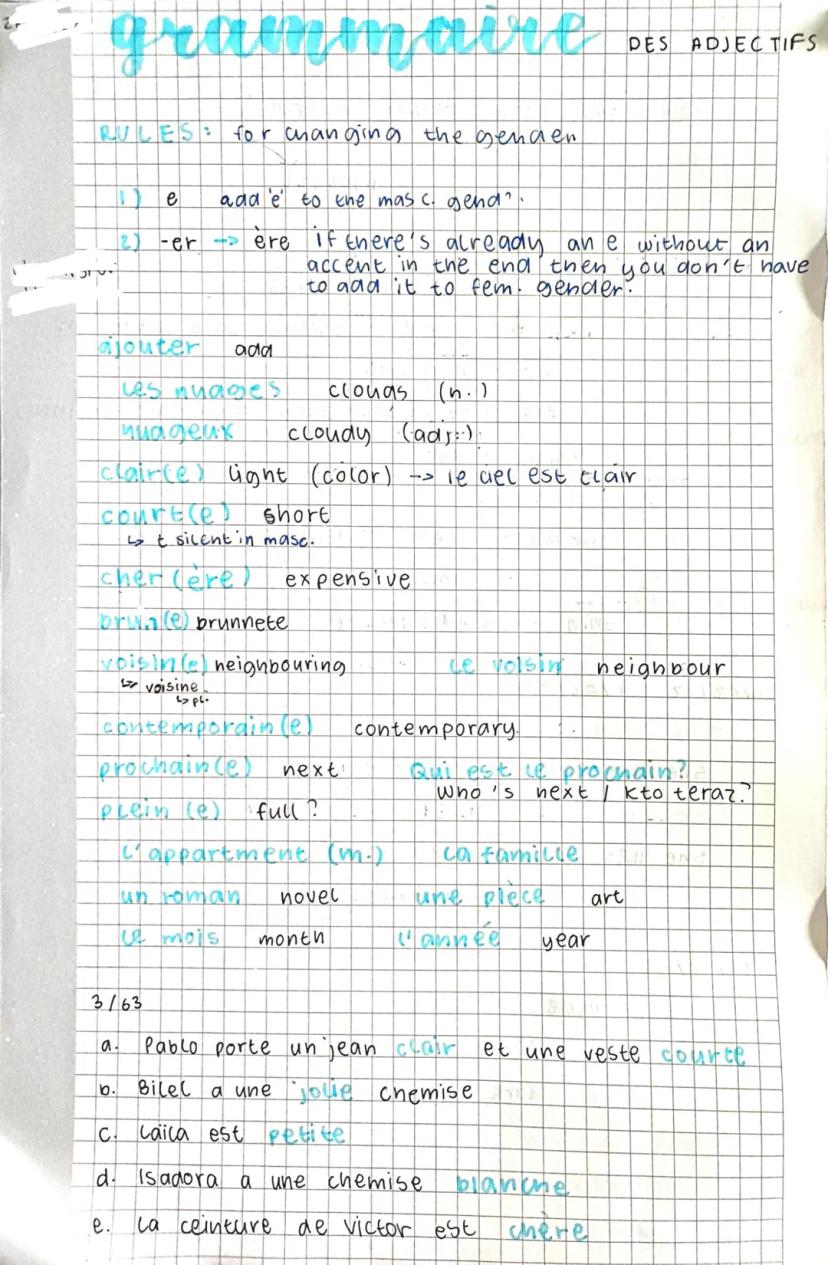 grammaire DES ADJECTIFS
RULES: for changing the gender
1) e add 'e' to the masc. gend.
2) -er --> ère if there's already an e without an
accent in the end then you don't have
to add it to fem. gender.
ajouter add
les nuages clouds (n.)
nuageux cloudy (adj.)
clair(e) light (color) --> le ciel est clair
court(e) short
↳ t silent in masc.
cher (ère) expensive
brun(e) brunnete
voisin(e) neighbouring le voisin neighbour
↳ voisine
↳ pl.
contemporain(e) contemporary
prochain(e) next Qui est le prochain?
who's next / kto teraz?
plein (e) full?
l'appartment (m.) la famille
un roman novel une pièce art
le mois month l'année year
3/63
a. Pablo porte un jean clair et une veste courte
b. Bilel a une jolie chemise
c. Laila est petite
d. Isadora a une chemise blanche
e. La ceinture de Victor est chère